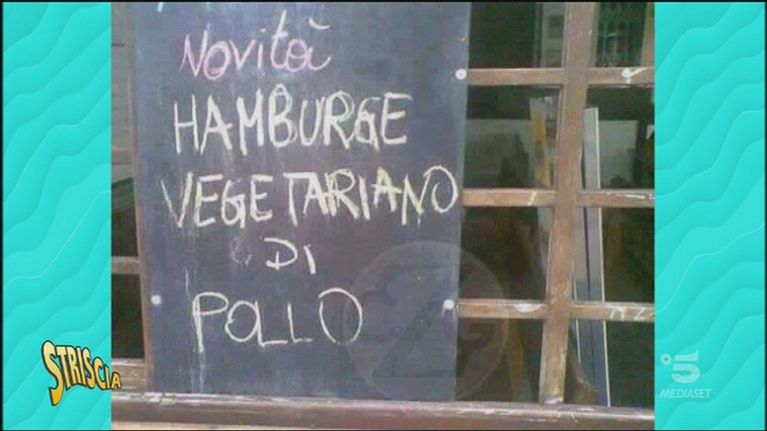 Novità
HAMBURGE
VEGETARIANO
DI
POLLO
STRISCIA
5
MEDIASET